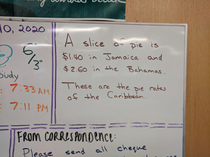 10, 2020
6/5
A slice of pie is
$1.40 in Jamaica and
$2.60 in the Bahamas.
These are the pie rates
of the Caribbean.
7:33 AM
7:11 PM
From CORRESPONDENCE:
Please send all cheque